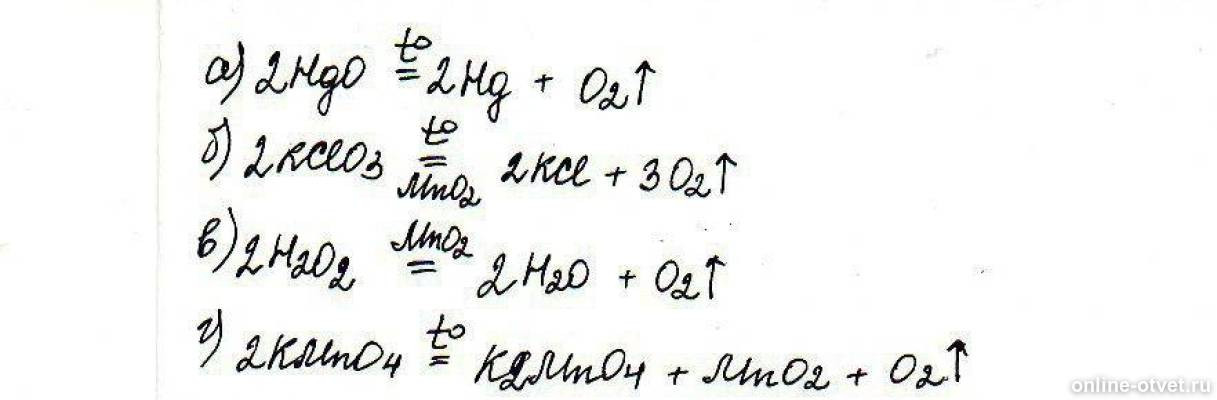 а) 2HgO t° = 2Hg + O2↑
б) 2KClO3 t° = MnO2 2KCl + 3O2↑
в) 2H2O2 MnO2 = 2H2O + O2↑
г) 2KMnO4 t° = K2MnO4 + MnO2 + O2↑
online-otvet.ru